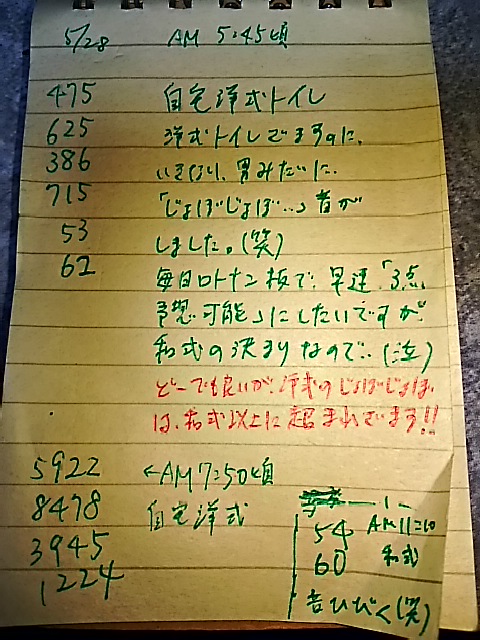 5/28 AM 5:45頃
475 自宅洋式トイレ
625 洋式トイレでますのに、
386 いきなり、男みたいに、
715 「じょぼじょぼ…」音が
53 しました。(笑)
62 毎日ロトナン板で、早速、「3点
予想可能」にしたいですが、
和式の決まりなので…(泣)
どーでも良いが、洋式のじょぼじょぼ、
は、和式以上に超まれでます!!
5922 ←AM7:50頃
8478 自宅洋式
3945
1224
54 AM11:10
60 和式
音ひびく(笑)